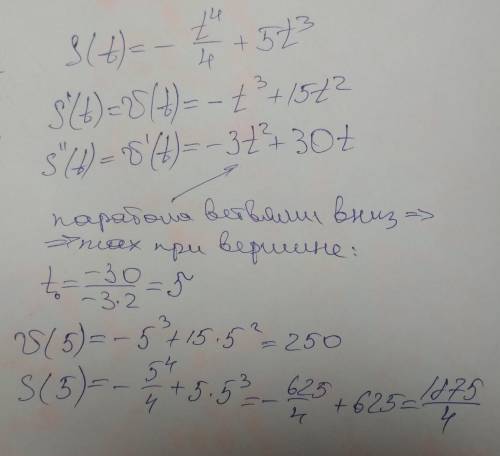 S(t) = - t⁴/4 + 5t³
S'(t) = v(t) = -t³ + 15t²
S''(t) = v'(t) = -3t² + 30t
парабола ветвями вниз =>
=> max при вершине:
t₀ = -30/-3·2 = 5
v(5) = -5³ + 15·5² = 250
S(5) = - 5⁴/4 + 5·5³ = - 625/4 + 625 = 1875/4